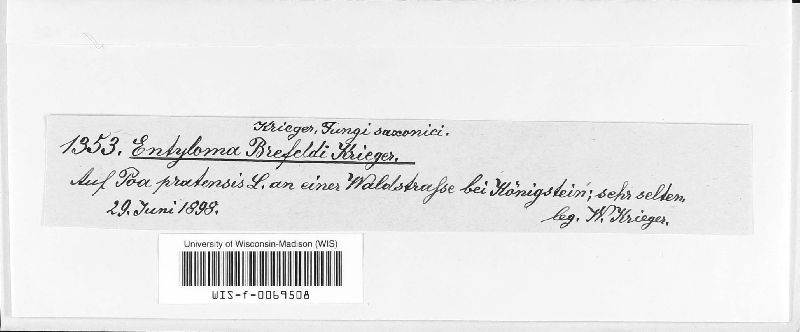 Krieger, Fungi saxonici.
1353. Entyloma Brefeldi Krieger.
Auf Poa pratensis L. an einer Waldstrasse bei Königstein, sehr selten.
29. Juni 1898.
leg. W. Krieger.
University of Wisconsin-Madison (WIS)
WIS-f-0069508